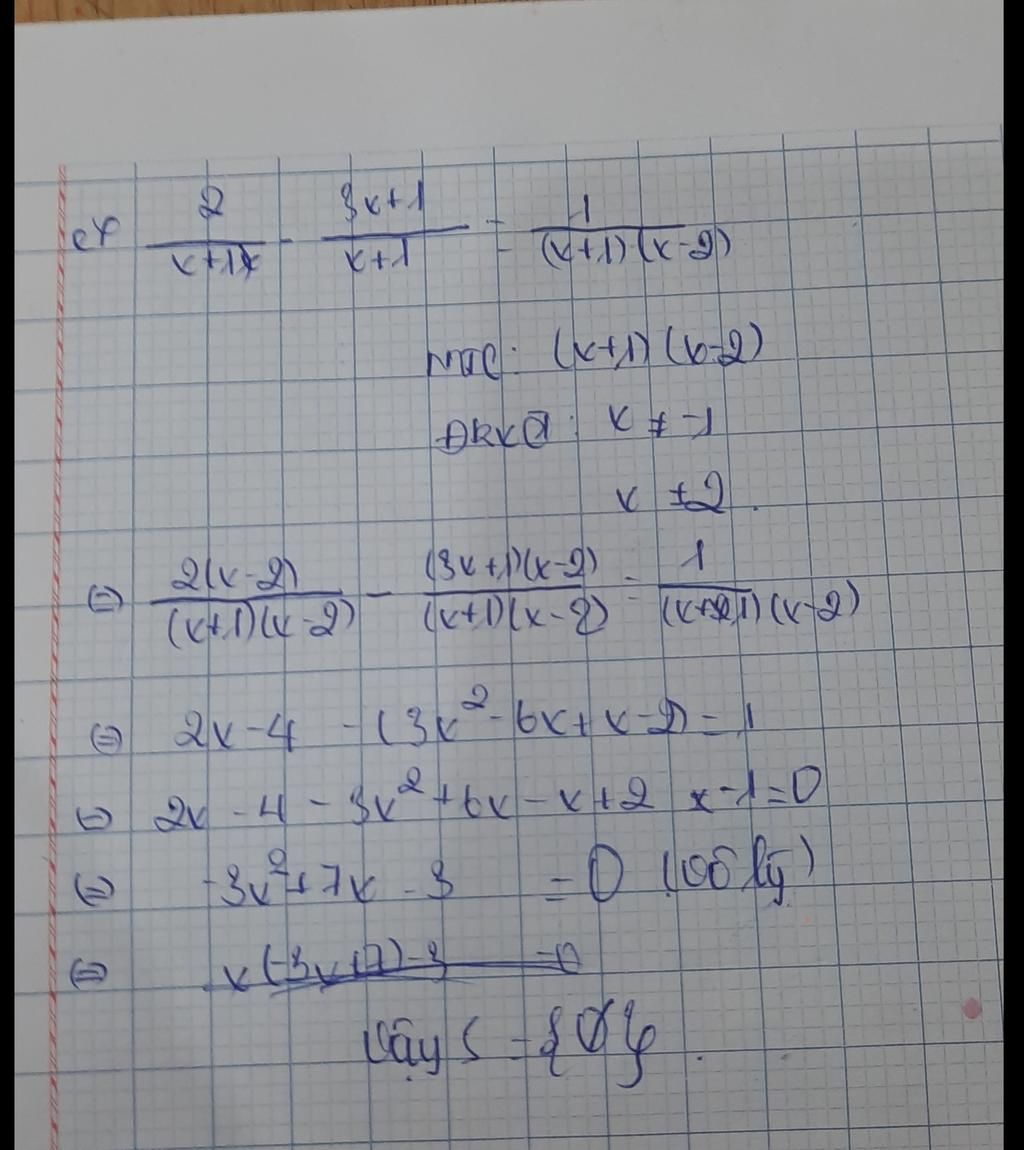 e, 2/(x+1) - (3x+1)/(x+1) = 1/((x+1)(x-2))
MTC: (x+1)(x-2)
ĐKXĐ: x ≠ -1
x ≠ 2.
⇔ 2(x-2)/((x+1)(x-2)) - (3x+1)(x-2)/((x+1)(x-2)) = 1/((x+1)(x-2))
⇔ 2x-4 - (3x²-6x+x-2) = 1
⇔ 2x - 4 - 3x² + 6x - x + 2 - 1 = 0
⇔ -3x² + 7x - 3 = 0 (vô lý)
⇔ x(-3x+7)-3 = 0
Vậy S = {∅}.